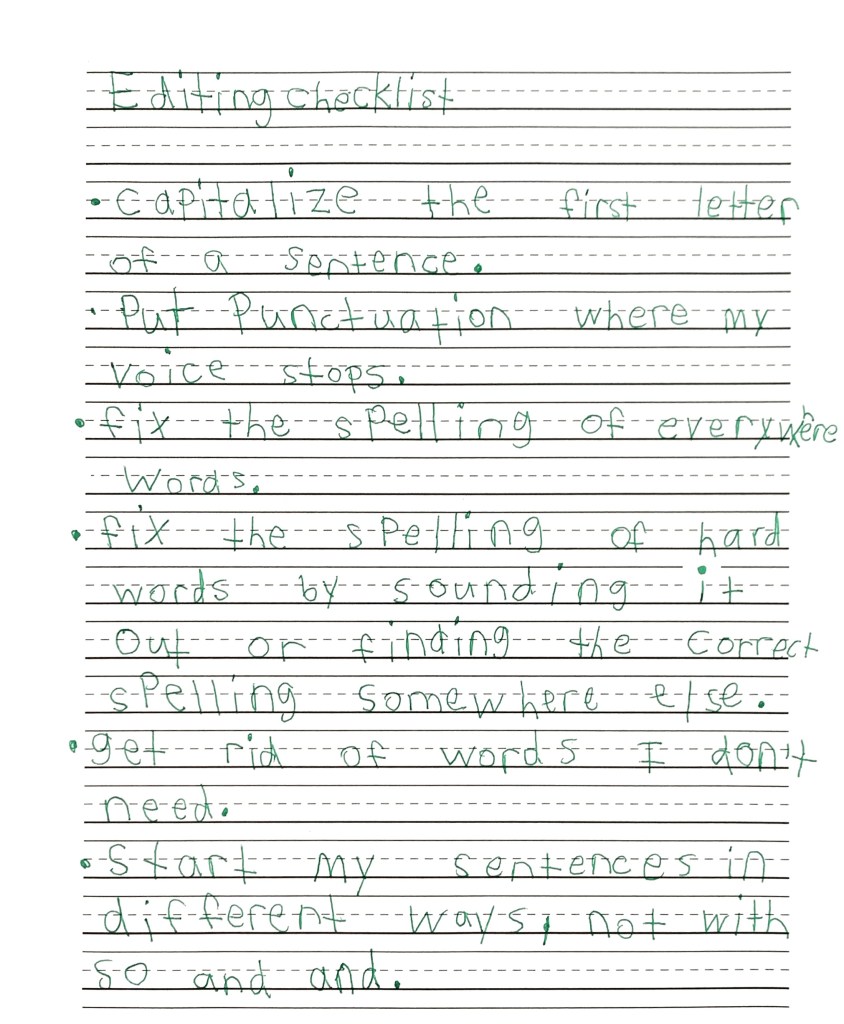 Editing checklist
• Capitalize the first letter
of a sentence.
• Put Punctuation where my
voice stops.
• fix the spelling of everywhere
words.
• fix the spelling of hard
words by sounding it
out or finding the correct
spelling somewhere else.
• get rid of words I don't
need.
• Start my sentences in
different ways, not with
so and and.